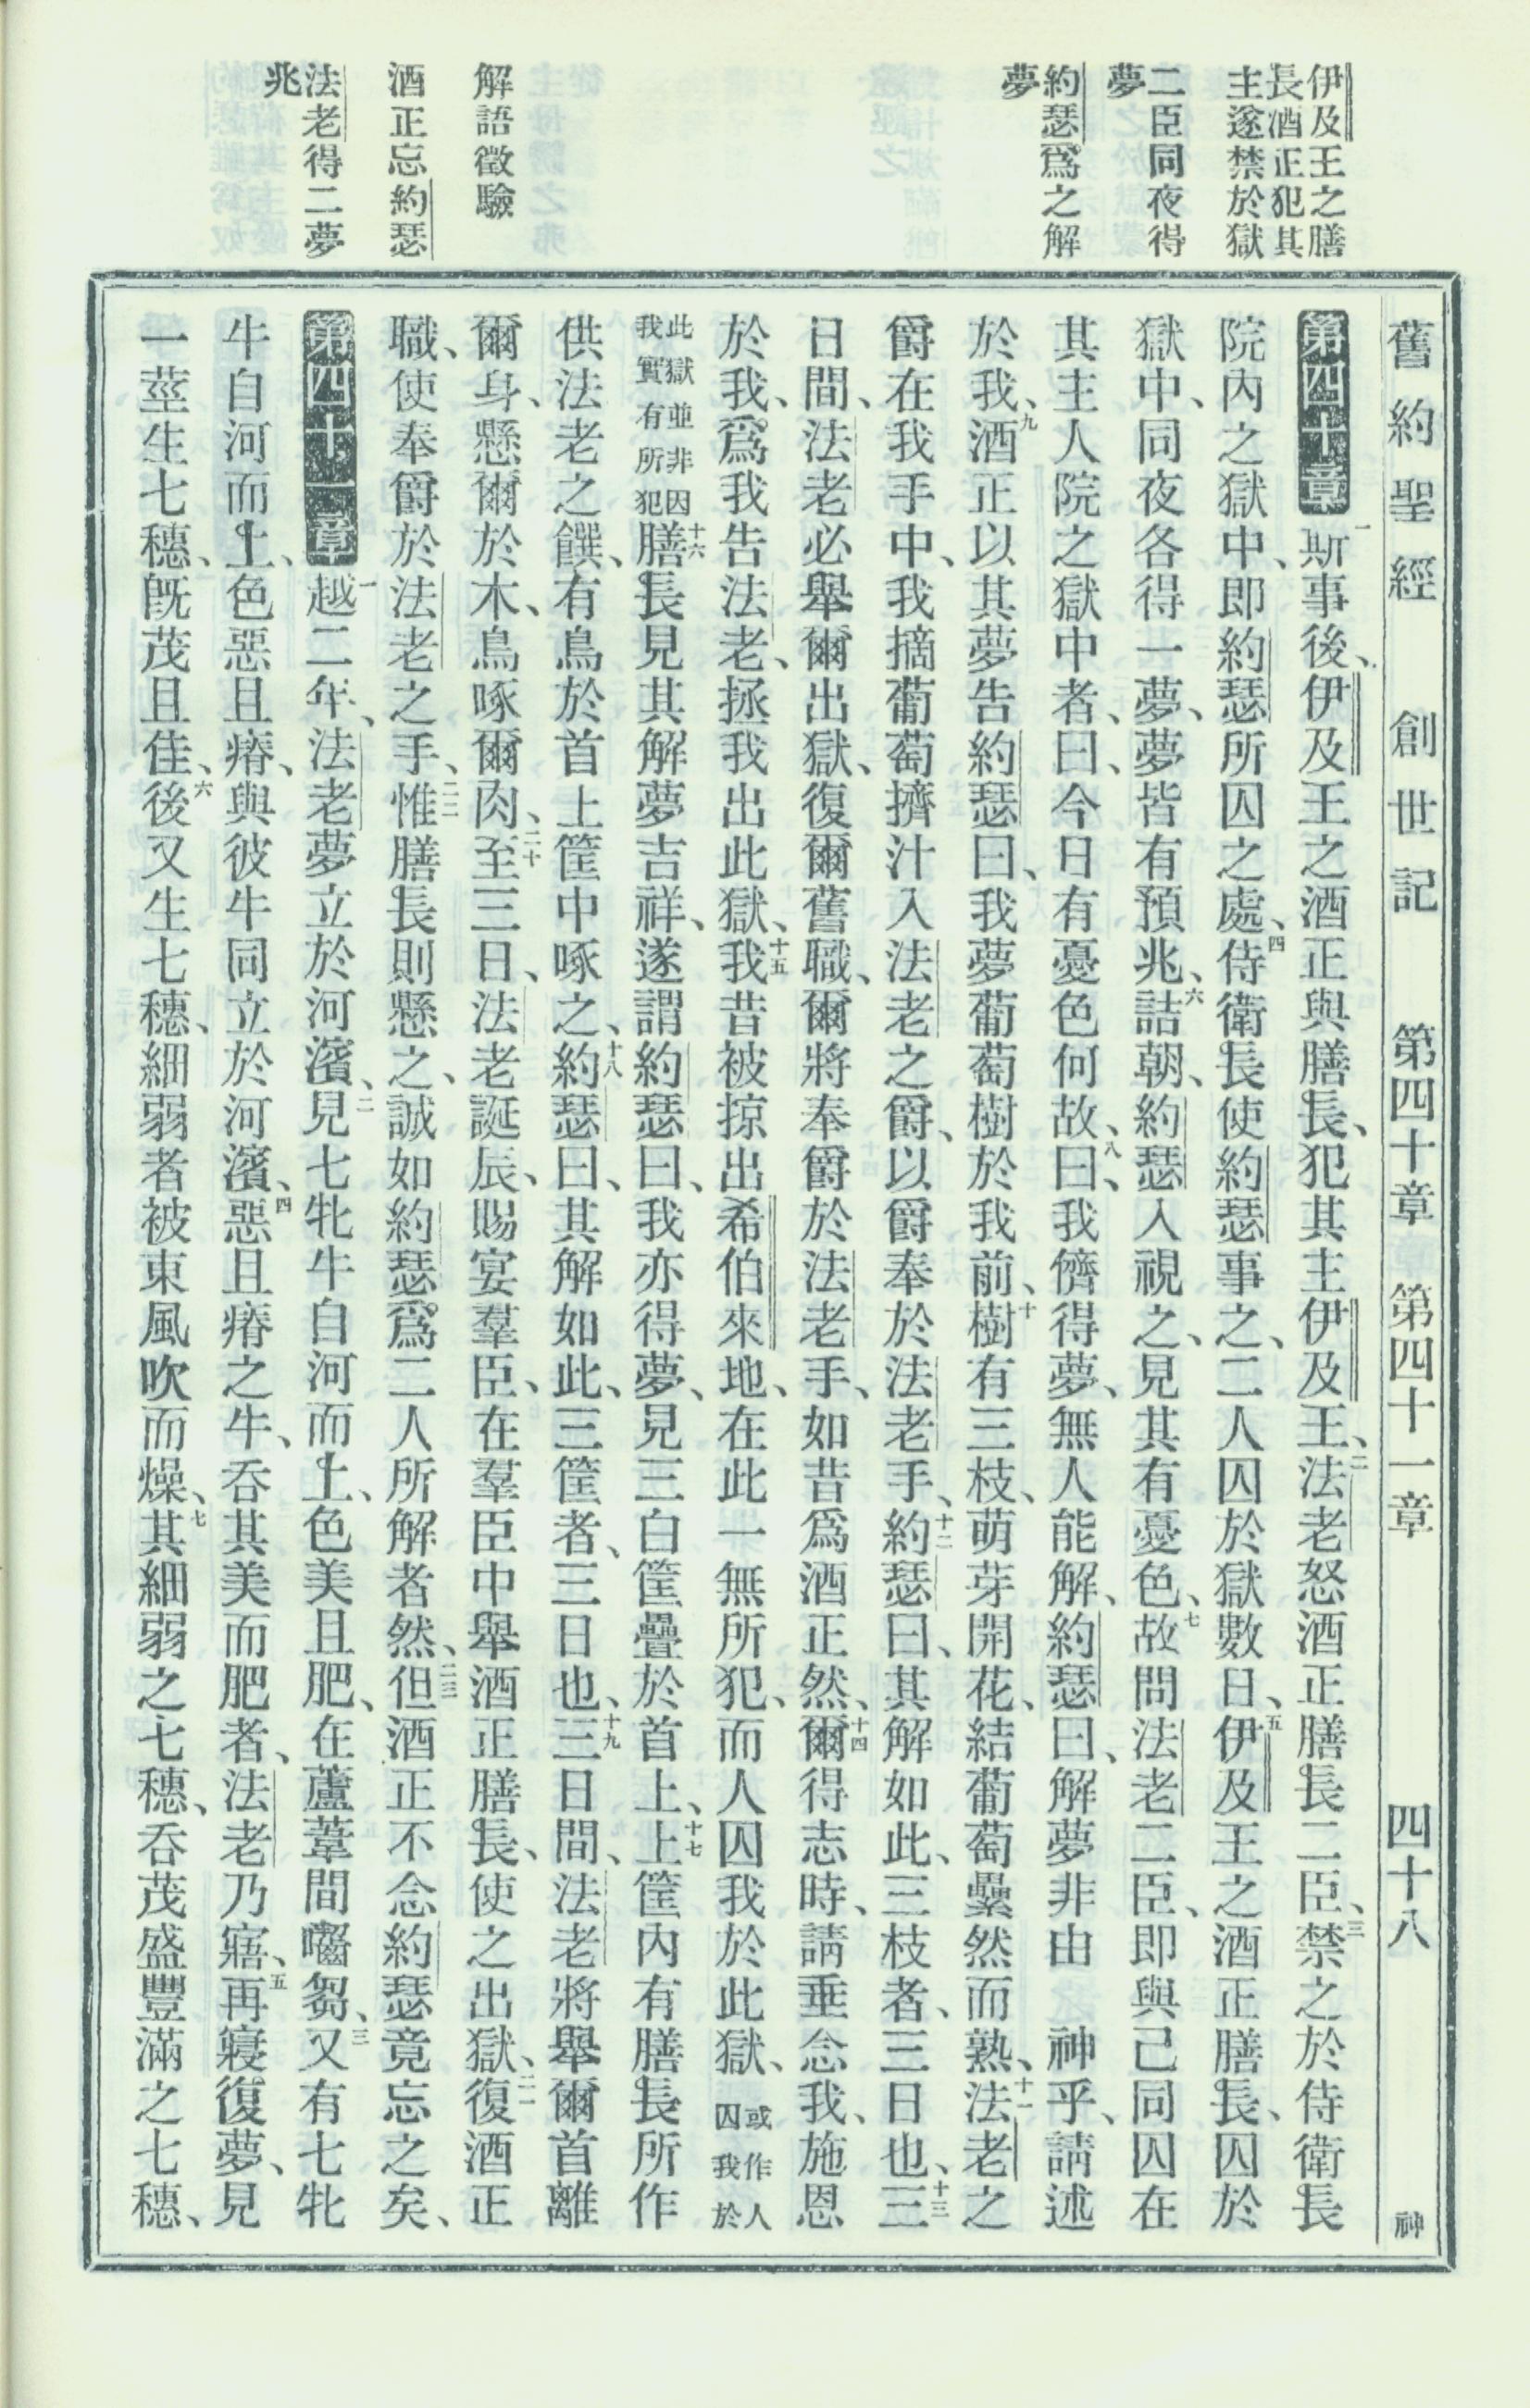 舊約聖經 創世記 第四十章 第四十一章 四十八 神
伊及王之膳
長酒正犯其
主遂禁於獄
二臣同夜得
夢
約瑟爲之解
夢
解語徵驗
酒正忘約瑟
法老得二夢
兆
第四十章 一斯事後、伊及王之酒正與膳長、犯其主伊及王、二法老怒酒正膳長二臣、三禁之於侍衛長
院內之獄中、即約瑟所囚之處、四侍衛長使約瑟事之、二人囚於獄數日、五伊及王之酒正膳長、囚於
獄中、同夜各得一夢、夢皆有預兆、六詰朝、約瑟入視之、見其有憂色、七故問法老二臣、即與己同囚在
其主人院之獄中者、曰、今日有憂色何故、八曰、我儕得夢、無人能解、約瑟曰、解夢非由 神乎、請述
於我、九酒正以其夢告約瑟曰、我夢葡萄樹於我前、十樹有三枝、萌芽開花、結葡萄纍然而熟、十一法老之
爵在我手中、我摘葡萄擠汁入法老之爵、以爵奉於法老手、十二約瑟曰、其解如此、三枝者、三日也、十三三
日間、法老必舉爾出獄、復爾舊職、爾將奉爵於法老手、如昔爲酒正然、十四爾得志時、請垂念我、施恩
於我、爲我告法老、拯我出此獄、十五我昔被掠出希伯來地、在此一無所犯、而人囚我於此獄、或作人囚我於
此獄並非因我實有所犯十六膳長見其解夢吉祥、遂謂約瑟曰、我亦得夢、見三白筐疊於首上、十七上筐內有膳長所作
供法老之饌、有鳥於首上筐中啄之、十八約瑟曰、其解如此、三筐者、三日也、十九三日間、法老將舉爾首離
爾身、懸爾於木、鳥啄爾肉、二十至三日、法老誕辰、賜宴羣臣、在羣臣中舉酒正膳長、使之出獄、二一復酒正
職、使奉爵於法老之手、二二惟膳長則懸之、誠如約瑟爲二人所解者然、二三但酒正不念約瑟竟忘之矣、
第四十一章 一越二年、法老夢立於河濱、二見七牝牛自河而上、色美且肥、在蘆葦間囓芻、三又有七牝
牛自河而上、色惡且瘠、與彼牛同立於河濱、四惡且瘠之牛、吞其美而肥者、法老乃寤、五再寢復夢、見
一莖生七穗、旣茂且佳、六後又生七穗、細弱者被東風吹而燥、七其細弱之七穗、吞茂盛豐滿之七穗、